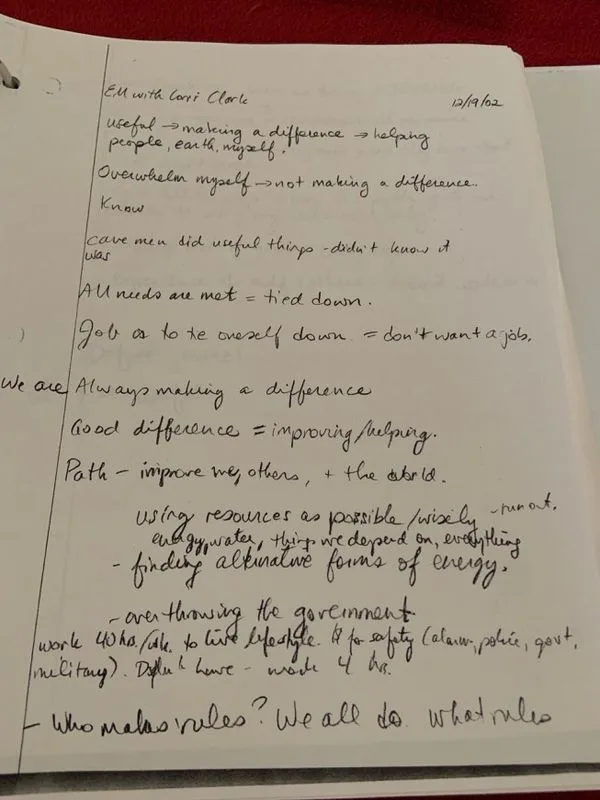 EM with Lorri Clark 12/19/02
useful → making a difference → helping
people, earth, myself.
Overwhelm myself → not making a difference.
Know
cave men did useful things - didn't know it
was
All needs are met = tied down.
Job as to tie oneself down = don't want a job.
We are Always making a difference
Good difference = improving/helping.
Path - improve me, others, + the world.
using resources as possible/wisely - run out.
energy, water, things we depend on, everything
- finding alternative forms of energy.
- overthrowing the government.
work 40 hrs./wk. to live lifestyle. for safety (alarm, police, govt,
military). have - work 4 hrs.
- Who makes rules? We all do. what rules